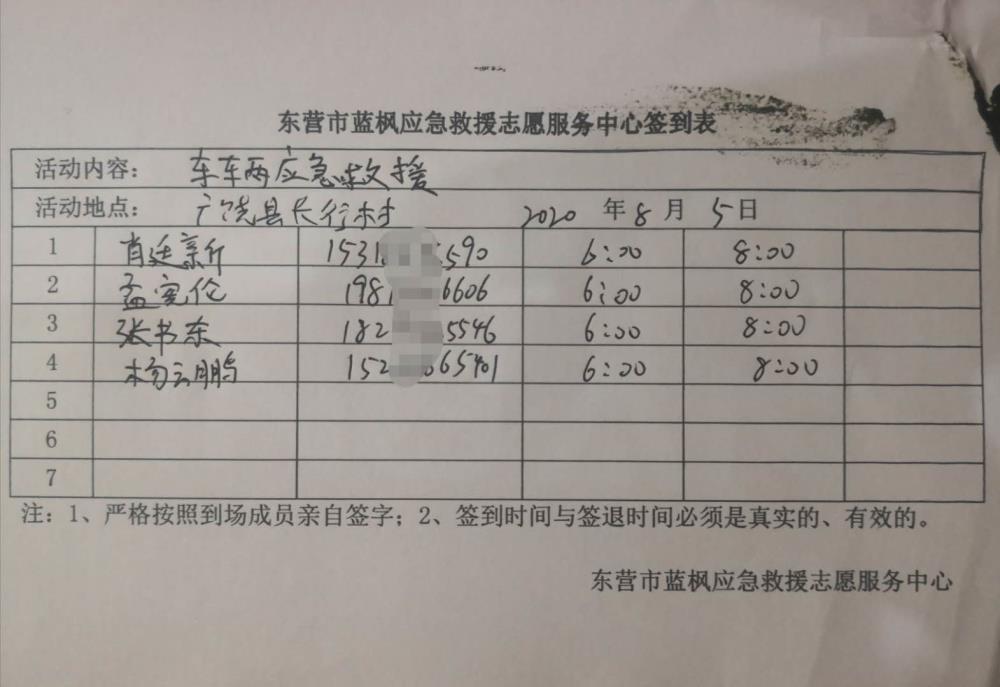 东营市蓝枫应急救援志愿服务中心签到表
活动内容： 车车两应急救援
活动地点： 广饶县长行村 2020 年 8 月 5 日
1 肖廷新 1531 590 6:00 8:00
2 孟宪伦 198 6606 6:00 8:00
3 张书东 182 5546 6:00 8:00
4 杨云鹏 152 065401 6:00 8:00
5
6
7
注：1、严格按照到场成员亲自签字；2、签到时间与签退时间必须是真实的、有效的。
东营市蓝枫应急救援志愿服务中心